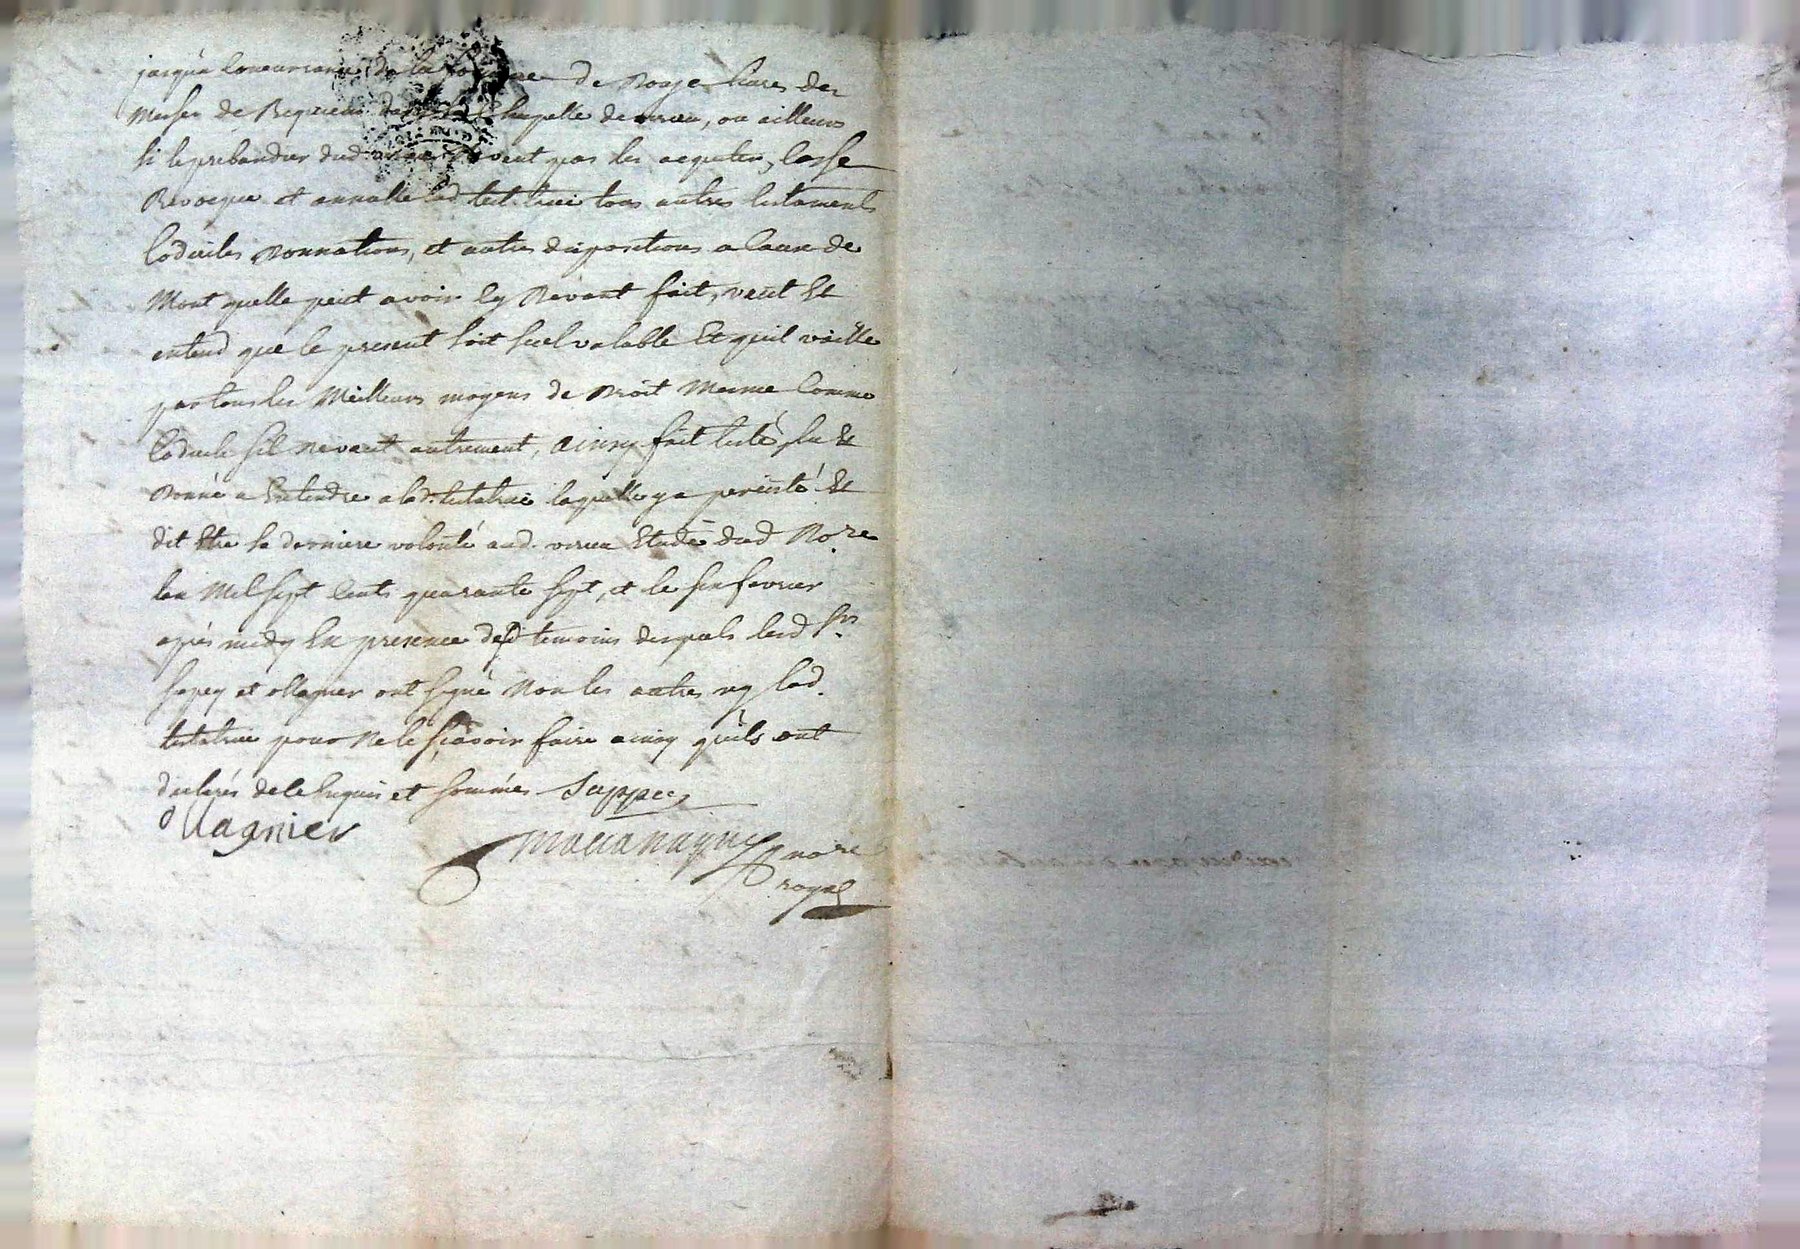 jusqu'a concurrance de la somme de douze livres des
Messes de Requiem dans la Chapelle de virieu, ou ailleurs
si le prebandier dud. ne veut pas les aquiter, Casse
Revoque et annulle lad test.trice tous autres testaments
Codicilles Donnations, et autres dispositions a Cause de
Mort quelle peut avoir Cy Devant fait, veut Et
entend que le present soit seul valable Et quil vaille
par tous les Meilleurs moyens de Droit Mesme Comme
Codicile sil ne vaut autrement, ainsy fait testé, lu Et
Donné a Entendre a lad. testatrice laquelle y a persisté Et
dit Etre sa derniere volonté aud. virieu Etude dud No.re
lan Mil sept Cents quarante sept, et le six fevrier
apres midy En presence desd temoins desquels lesd srs
Sapey et ollagnier ont signé Non les autres ny lad.
testatrice pour Ne le sçavoir faire ainsy quils ont
declarés de ce Enquis et sommés Sappey
ollagnier
no.re
royal